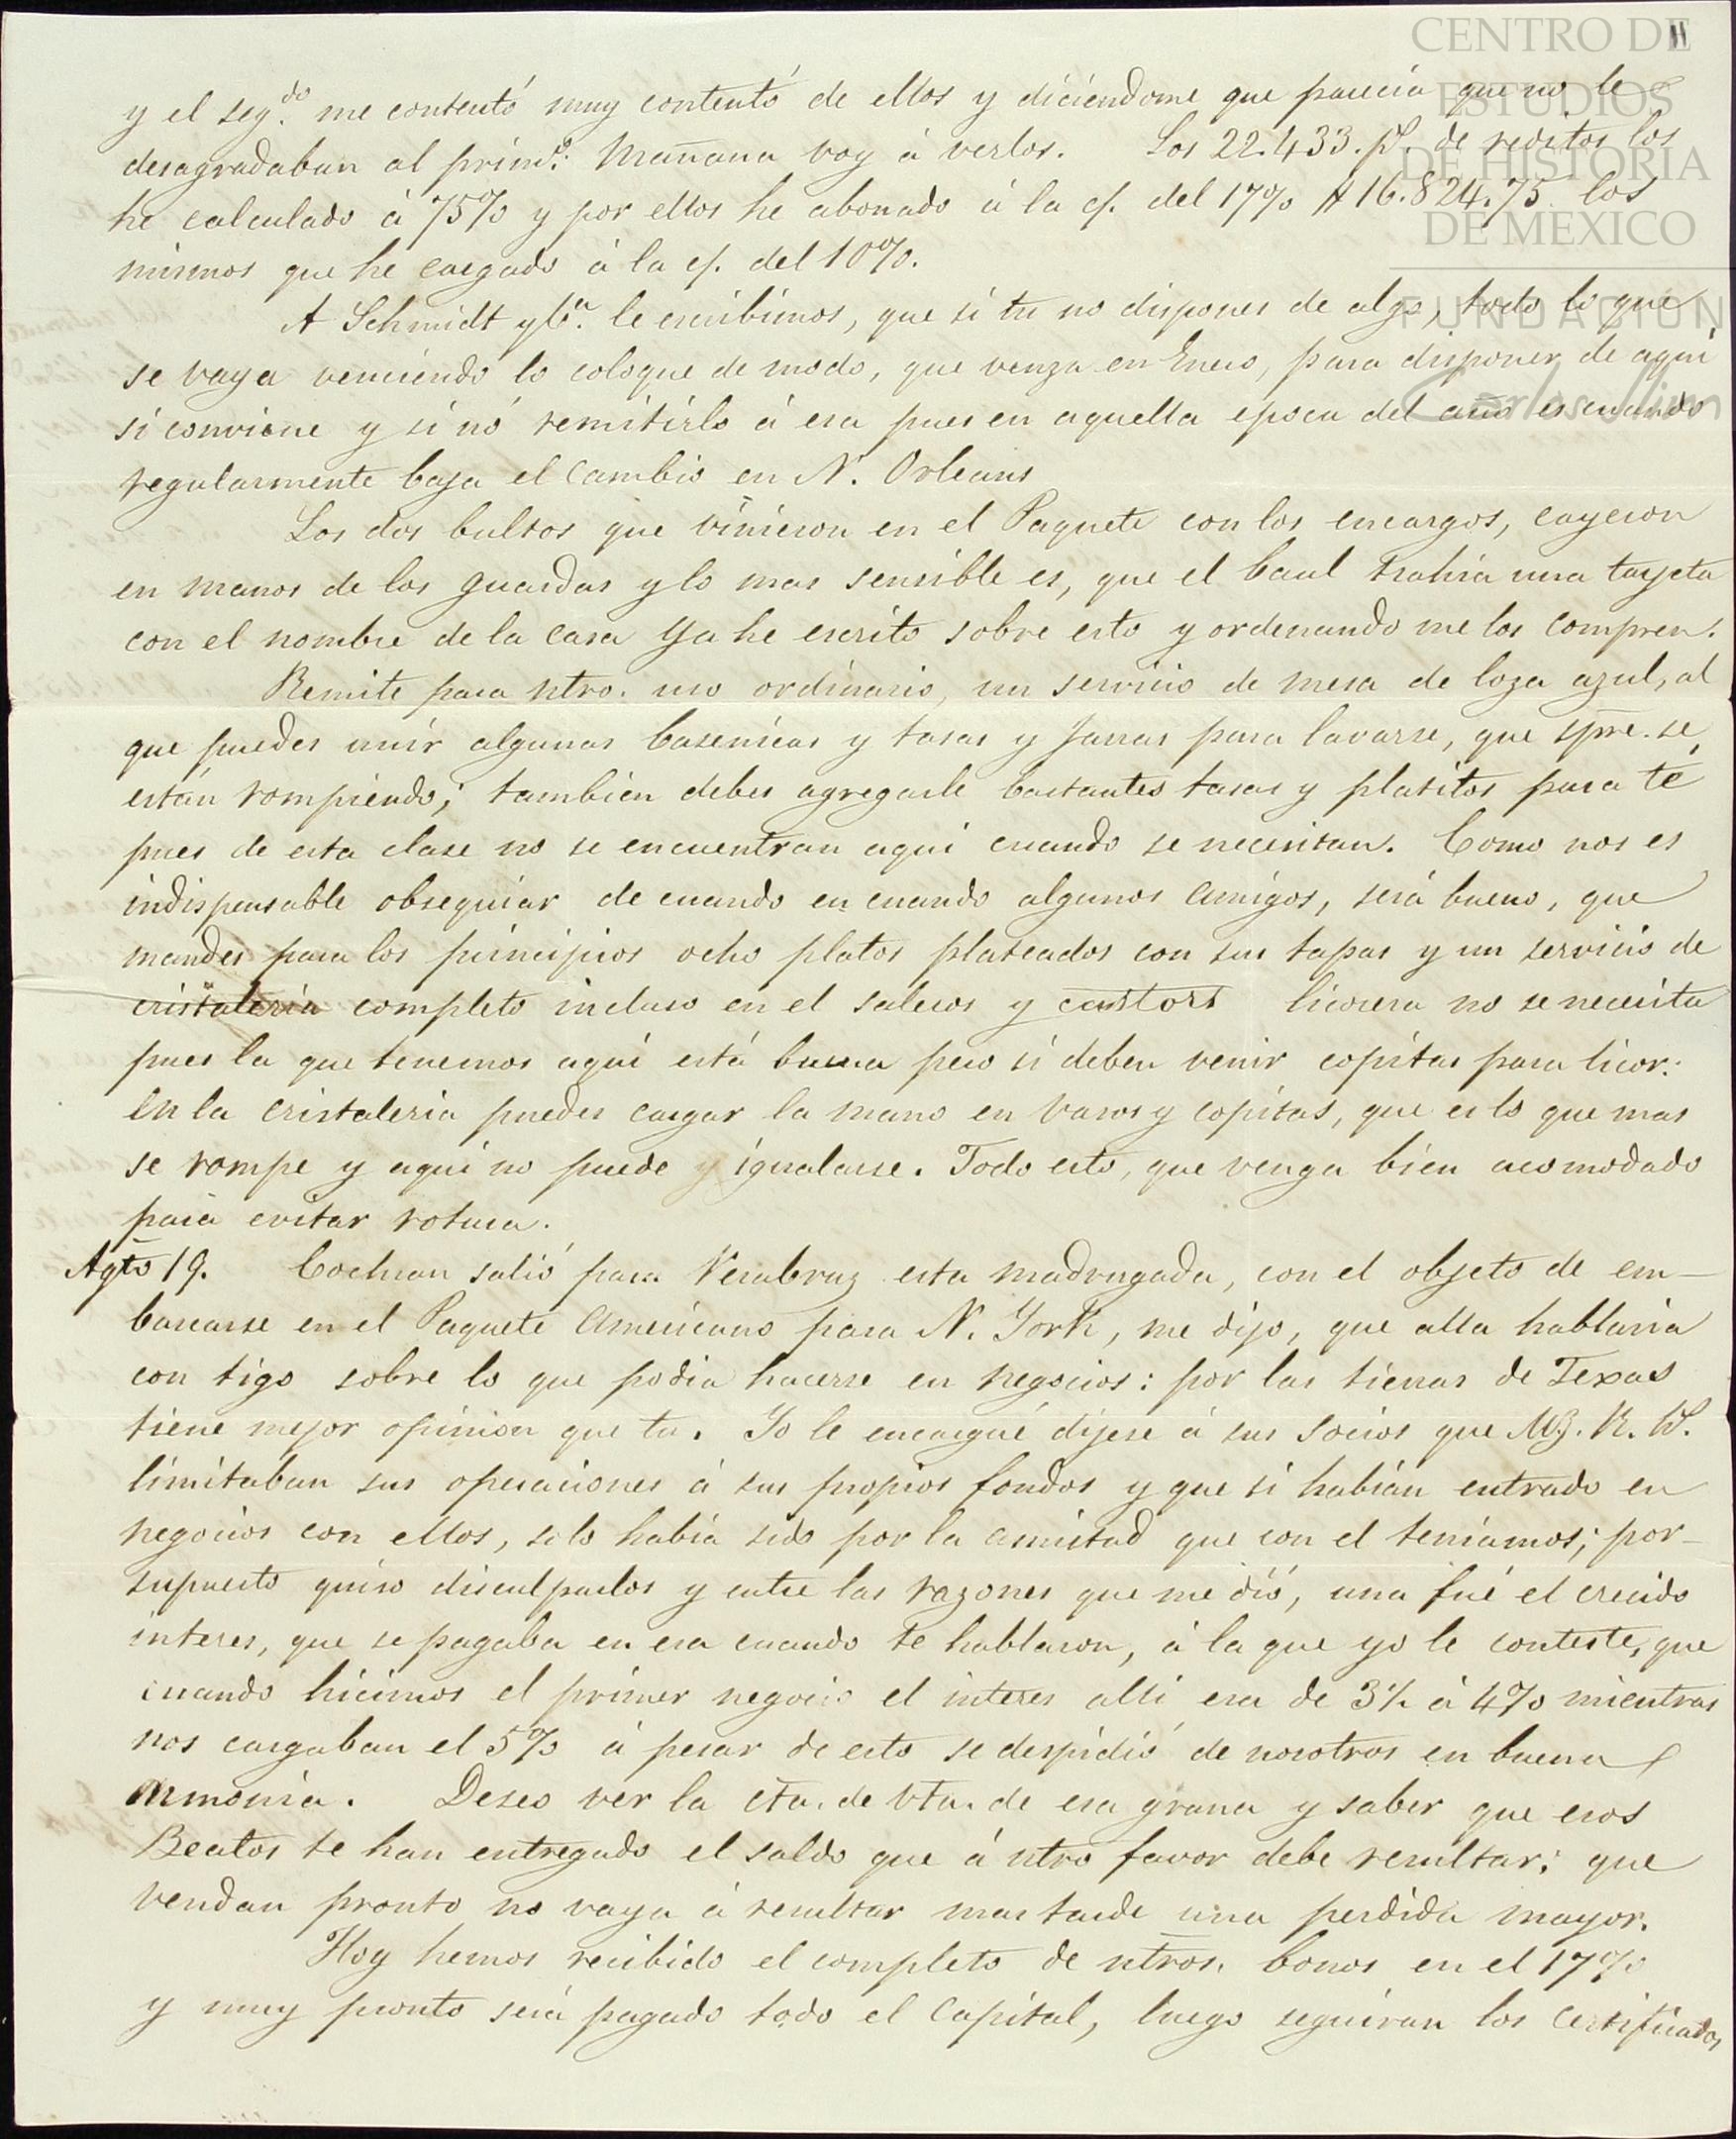 CENTRO DE
ESTUDIOS
DE HISTORIA
DE MEXICO
FUNDACION
Carlos Slim
11
y el seg.do me contestó muy contento de ellos y diciéndome que parecia que no le
desagradaban al prim.o: Mañana voy á verlos. Los 22.433. p.s de reditos los
he calculado á 75% y por ellos he abonado á la c/. del 17% $ 16.824.75 los
mismos que he cargado á la c/. del 10%.
A Schmidt y C.a le escribimos, que si tu no dispones de algo, todo lo que
se vaya venciendo lo coloque de modo, que venza en Enero, para disponer de aqui
si conviene y si nó remitirlo á esa pues en aquella epoca del año es cuando
regularmente baja el cambio en N. Orleans
Los dos bultos que vinieron en el Paquete con los encargos, cayeron
en manos de los guardas y lo mas sensible es, que el baul trahia una tarjeta
con el nombre de la casa Ya he escrito sobre esto y ordenando me los compren.
Remite para ntro. uso ordinario, un servicio de mesa de loza azul, al
que puedes unir algunas basenicas y tasas y Jarras para lavarse, que spre. se
están rompiendo; tambien debes agregarle bastantes tasas y platitos para té
pues de esta clase no se encuentran aqui cuando se necesitan. Como nos es
indispensable obsequiar de cuando en cuando algunos amigos, será bueno, que
mandes para los principios ocho platos plateados con sus tapas y un servicio de
cristaleria completo incluso en el saleros y castors licorera no se necesita
pues la que tenemos aqui está buena pero si deben venir copitas para licor:
En la cristaleria puedes cargar la mano en vasos y copitas, que es lo que mas
se rompe y aqui no puede y igualarse. Todo esto, que venga bien acomodado
para evitar rotura.
Agto 19. Cochran salió para Veracruz esta madrugada, con el objeto de em-
barcarse en el Paquete Americano para N. York, me dijo, que alla hablaria
con tigo sobre lo que podia hacerse en negocios: por las tierras de Texas
tiene mejor opinion que tu. Yo le encargué dijese á sus socios que
limitaban sus operaciones á sus propios fondos y que si habian entrado en
negocios con ellos, solo habia sido por la amistad que con el teniamos; por-
supuesto quiso disculparlos y entre las razones que me dió, una fué el crecido
interes, que se pagaba en esa cuando te hablaron, á la que yo le conteste, que
cuando hicimos el primer negocio el interes alli era de 3½ á 4% mientras
nos cargaban el 5% á pesar de esto se despidió de nosotros en buena
armonia. Deseo ver la cta. de vta. de esa grana y saber que esos
Beatos te han entregado el saldo que á ntro favor debe resultar: que
vendan pronto no vaya á resultar mas tarde una perdida mayor.
Hoy hemos recibido el completo de ntros. bonos en el 17%
y muy pronto será pagado todo el Capital, luego seguiran los Certificados